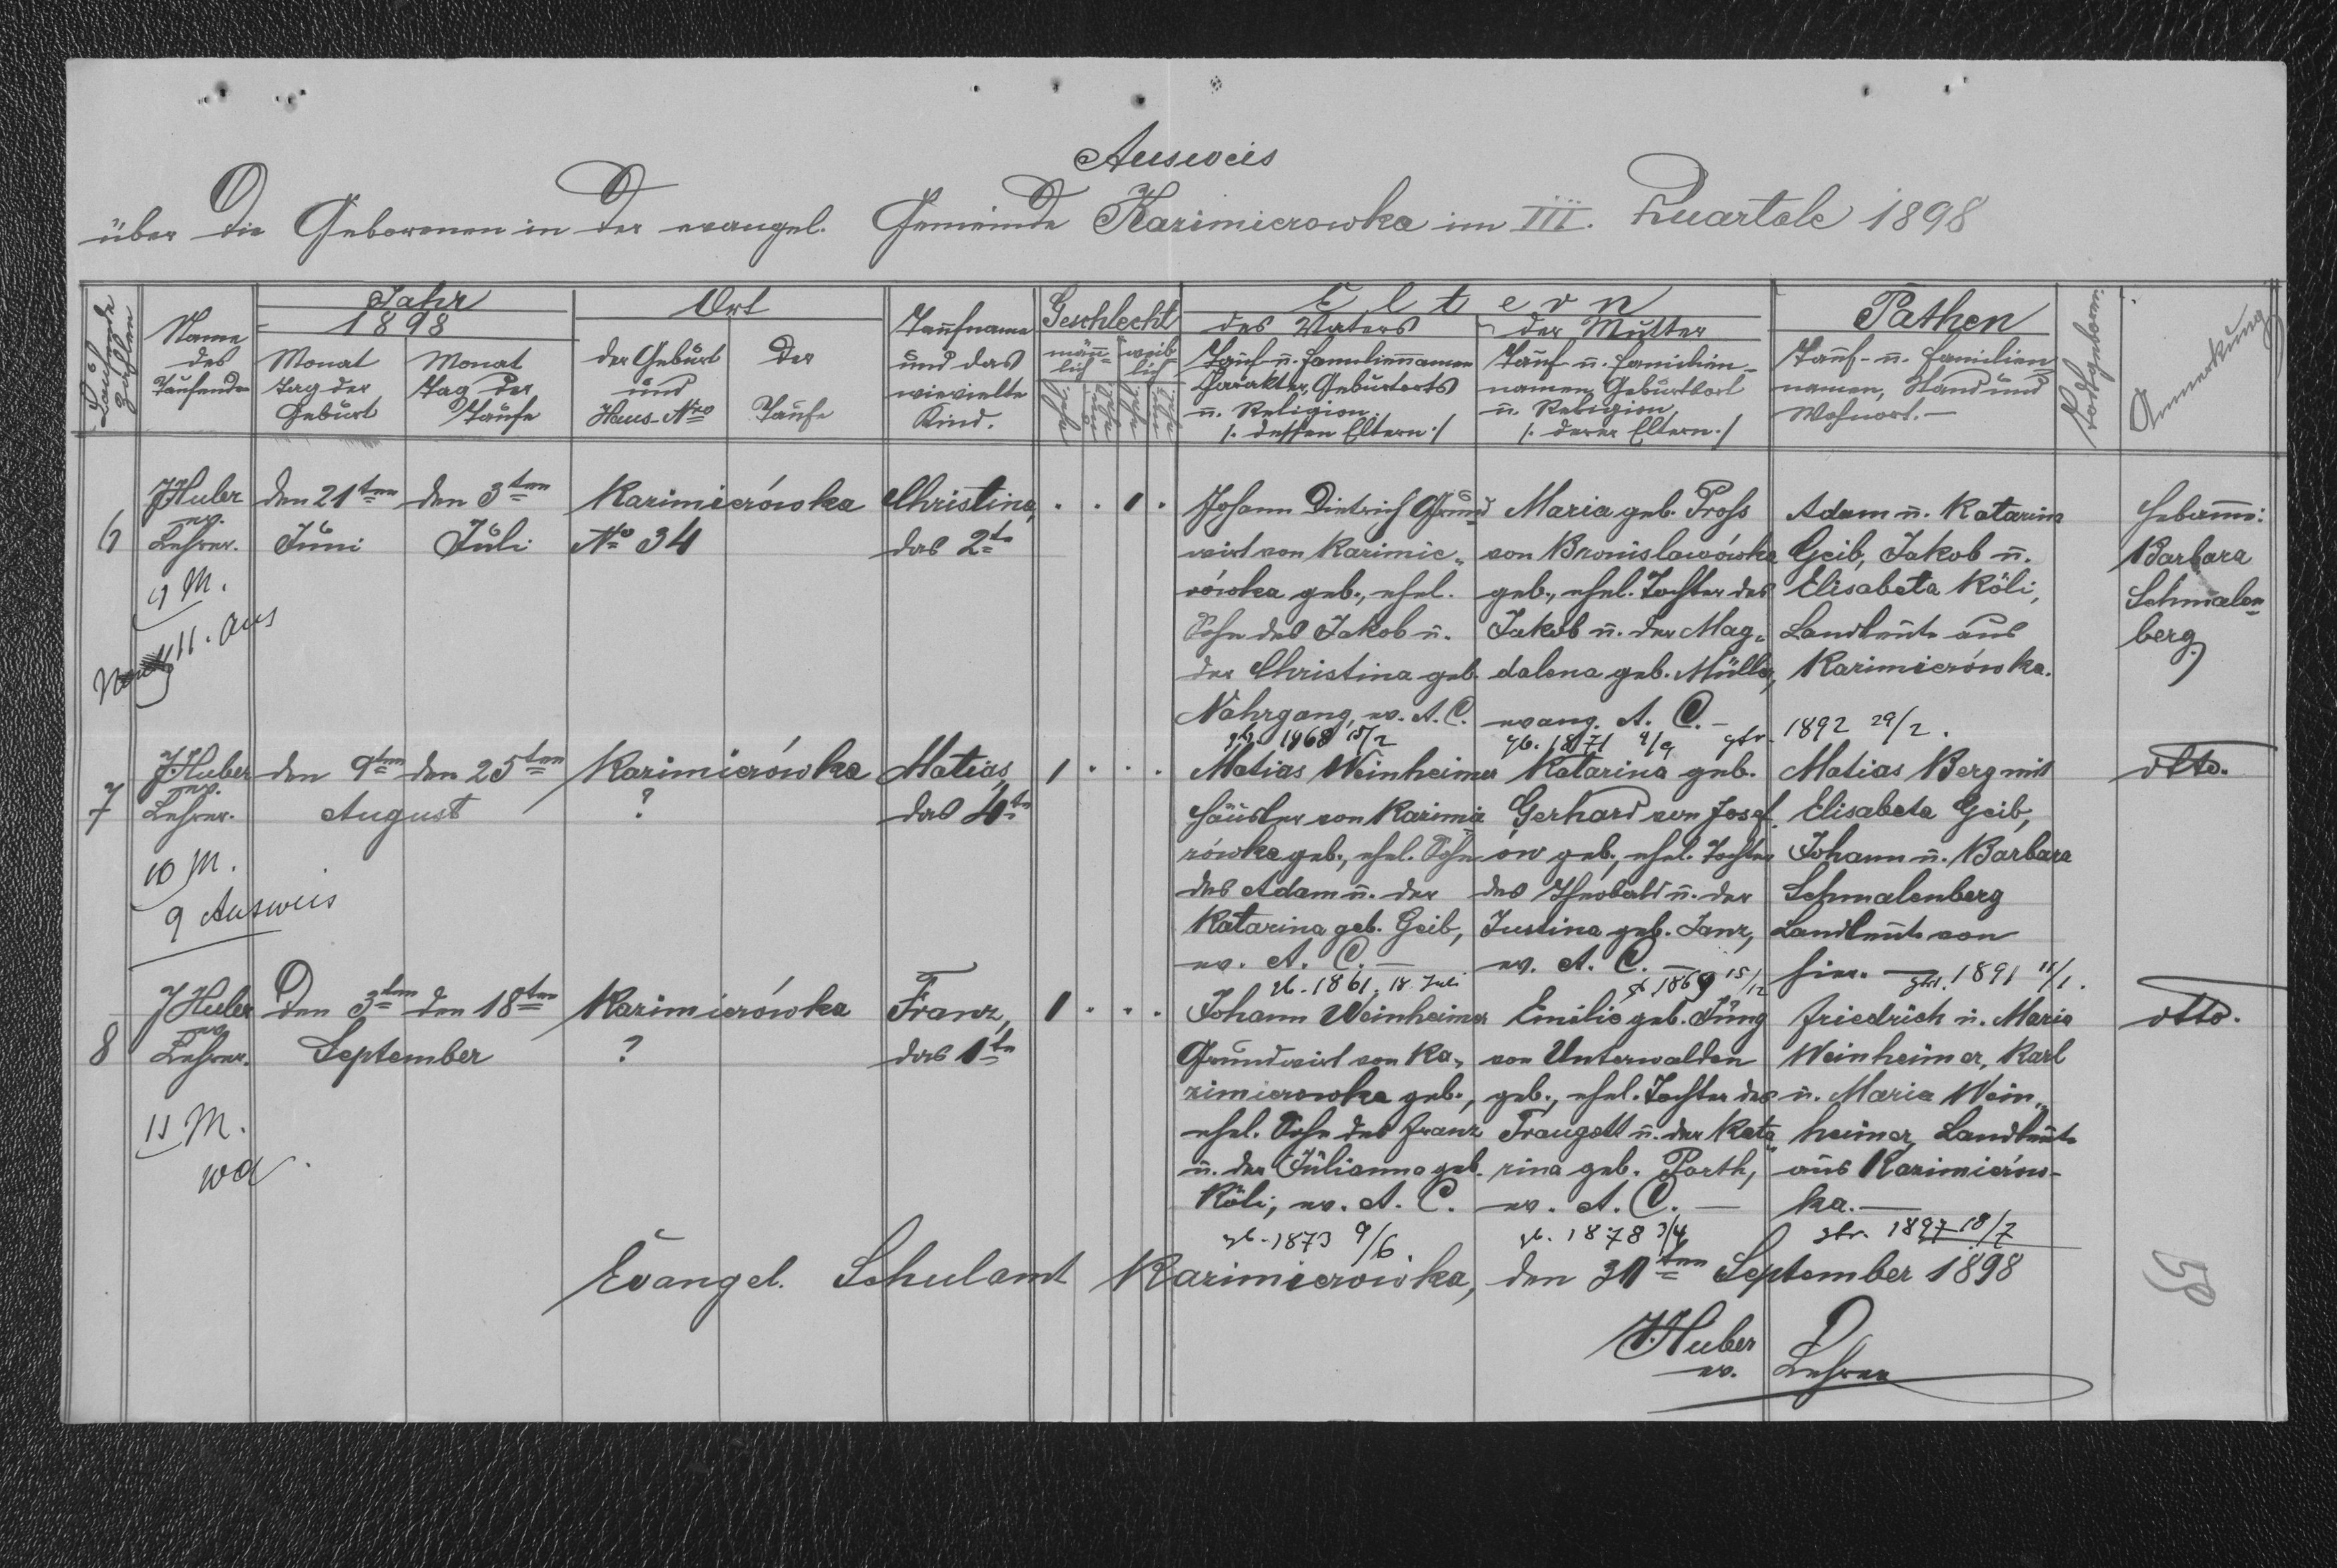 Ausweis
über die Geborenen in der evangel. Gemeinde Kazimierowka im III. Quartale 1898
Laufende Zahlen
Name des Taufenden
Jahr 1898
Monat Tag der Geburt
Monat Tag der Taufe
Ort
der Geburt und Haus-Nro
der Taufe
Taufname und das wievielte Kind.
Geschlecht
männlich
weiblich
Eltern
des Vaters
Tauf- u. Familiennamen
Charakter, Geburtsorts
u. Religion
/. dessen Eltern ./
der Mutter
Tauf- u. Familien-
namen, Geburtsort
u. Religion,
/. derer Eltern ./
Pathen
Tauf- u. Familien-
namen, Stand und
Wohnort. —
Todtgeboren.
Anmerkung
6
J Huber
ev.
Lehrer.
9 M.
11. Aus
den 21ten
Juni
den 3ten
Juli
Kazimierówka
No 34
Christina,
das 2te
. . 1 .
Johann Dietrich Grund
wirt von Kazimie„
rówka geb., ehel.
Sohn des Jakob u.
der Christina geb.
Nahrgang, ev. A. C.
gb. 1868 15/2
Maria geb. Pross
von Bronislawówka
geb., ehel. Tochter des
Jakob u. der Mag„
dalena geb. Müller,
evang. A. C. —
gb. 1871 4/9
Adam u. Katarina
Geib, Jakob u.
Elisabeta Köli,
Landleute aus
Kazimierówka.
gtr. 1892 29/2.
Hebamme:
Barbara
Schmalen=
berg.
7
J Huber
ev.
Lehrer.
10 M.
9 Ausweis
den 9ten den 25ten
August
Kazimierówka
?
Matias,
das 4te
1 . . .
Matias Weinheimer
Häusler von Kazimie
rówka geb., ehel. Sohn
des Adam u. der
Katarina geb. Geib,
ev. A. C. —
gb. 1861. 18. Juli
Katarina geb.
Gerhard von Josef
ow geb., ehel. Tochter
des Theobald u. der
Justina geb. Janz,
ev. A. C. —
gb. 1869 15/12
Matias Berg mit
Elisabeta Geib,
Johann u. Barbara
Schmalenberg
Landleute von
hier. —
gtr. 1891 11/1.
dtto.
8
J Huber
ev.
Lehrer.
11 M.
Den 3ten den 18ten
September
Kazimierówka
?
Franz,
das 1te
1 . . .
Johann Weinheimer
Grundwirt von Ka„
zimierowka geb.,
ehel. Sohn des Franz
u. der Julianna geb.
Köli, ev. A. C.
gb. 1873 9/6.
Emilie geb. Jung
von Unterwalden
geb., ehel. Tochter des
Traugott u. der Kata
rina geb. Porth,
ev. A. C. —
gb. 1878 3/4
Friedrich u. Maria
Weinheimer, Karl
u. Maria Wein„
heimer, Landleute
aus Kazimierów-
ka. —
gtr. 1897 18/7
dtto.
Evangel. Schulamt Kazimierowka, den 30ten September 1898
J. Huber
ev. Lehrer